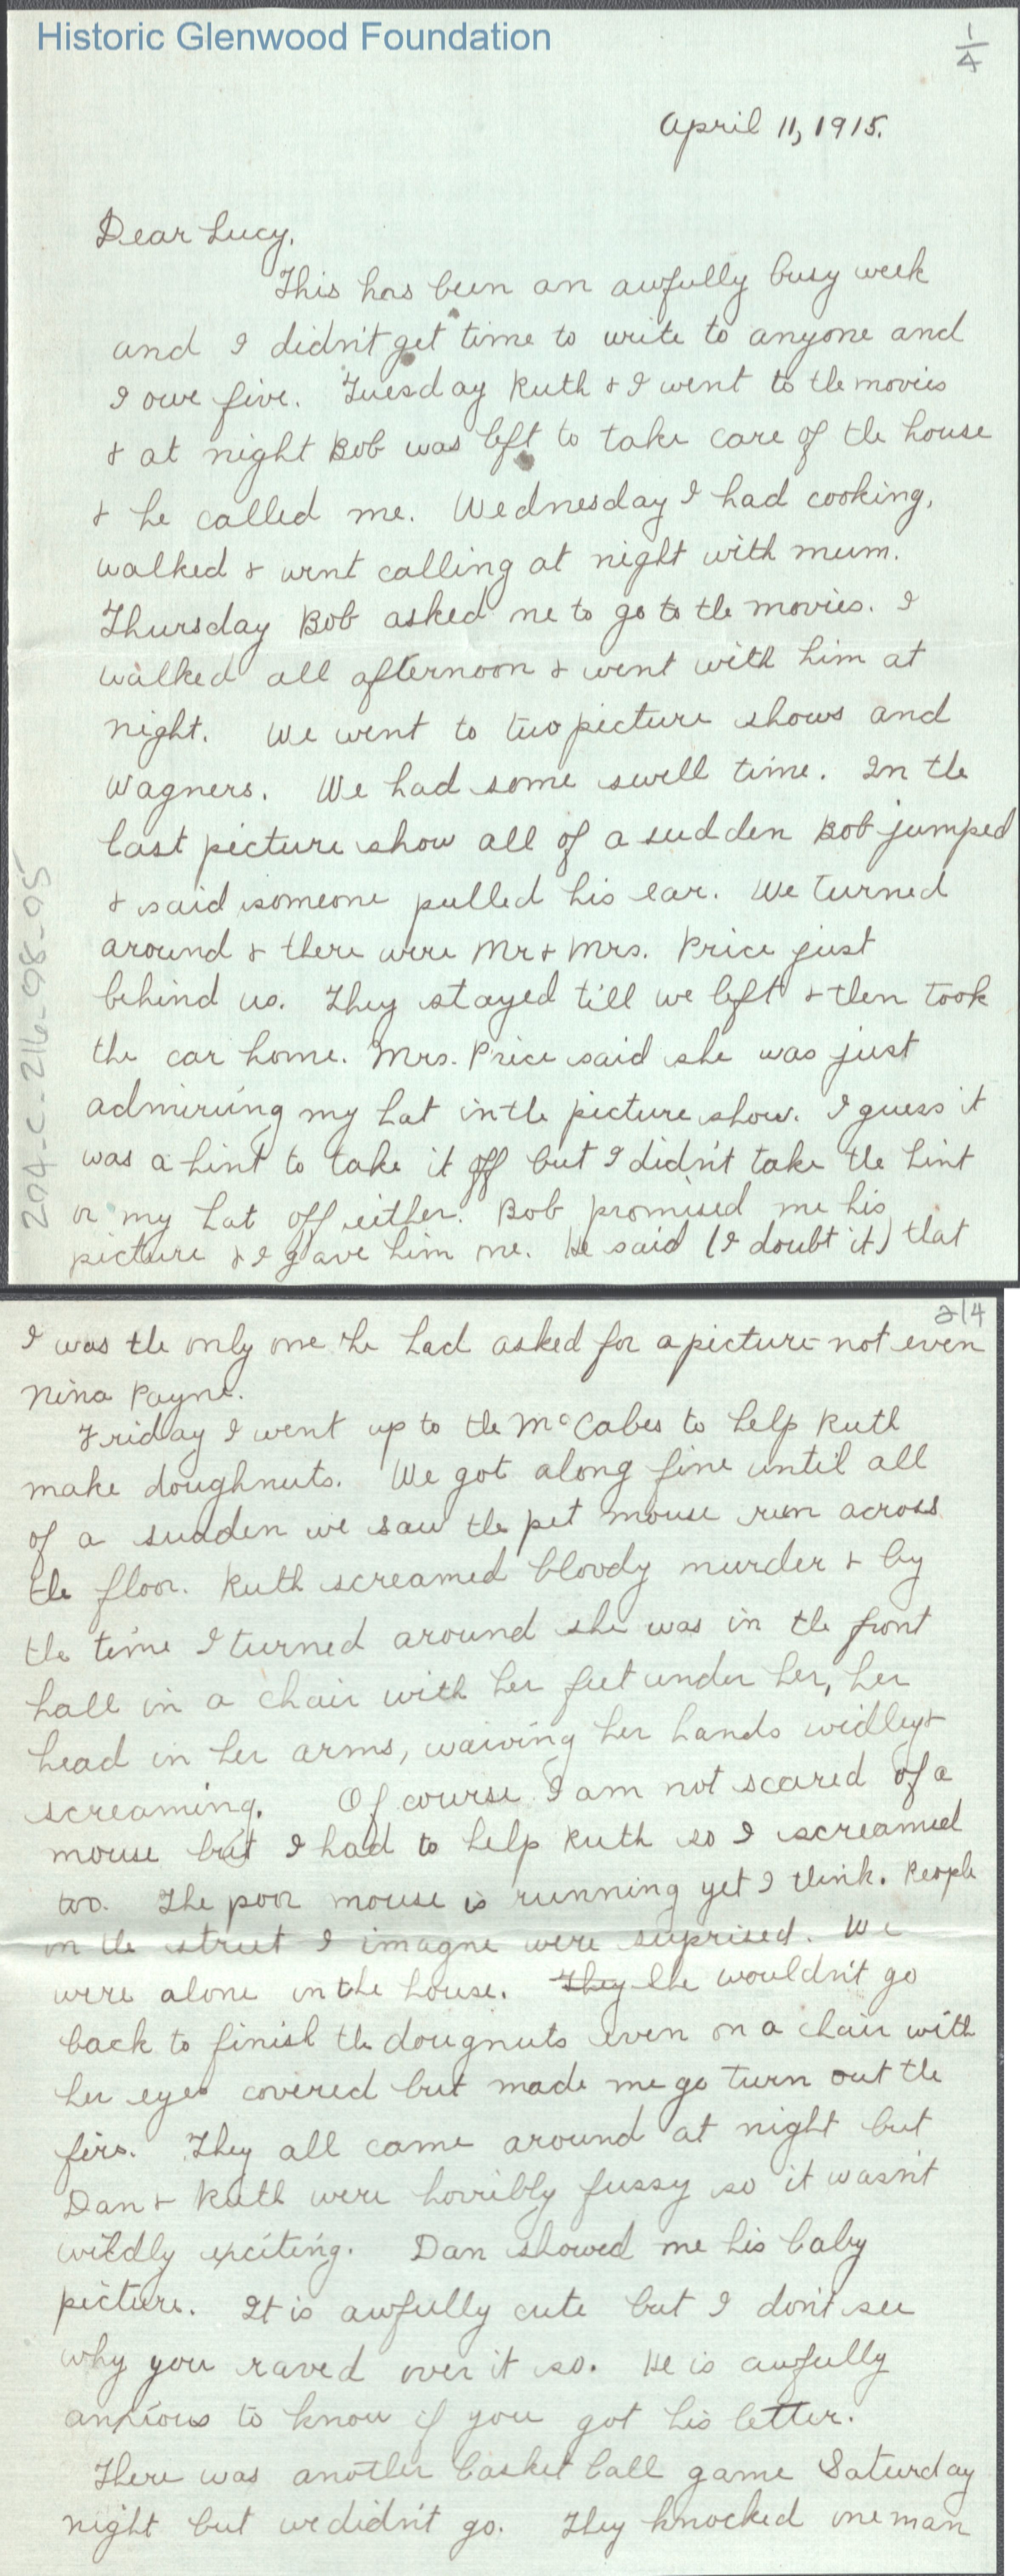 Historic Glenwood Foundation
1/4
April 11, 1915.
Dear Lucy,
This has been an awfully busy week
and I didn't get time to write to anyone and
I owe five. Tuesday Ruth & I went to the movies
& at night Bob was left to take care of the house
& he called me. Wednesday I had cooking,
walked & went calling at night with mum.
Thursday Bob asked me to go to the movies. I
walked all afternoon & went with him at
night. We went to two picture shows and
Wagners. We had some swell time. In the
last picture show all of a sudden Bob jumped
& said someone pulled his ear. We turned
around & there were Mr & Mrs. Price just
behind us. They stayed till we left & then took
the car home. Mrs. Price said she was just
admiring my hat in the picture show. I guess it
was a hint to take it off but I didn't take the hint
or my hat off either. Bob promised me his
picture & I gave him one. He said (I doubt it) that
204-C-216-98-95
2/4
I was the only one he had asked for a picture not even
Nina Payne.
Friday I went up to the McCabes to help Ruth
make doughnuts. We got along fine until all
of a sudden we saw the pet mouse run across
the floor. Ruth screamed bloody murder & by
the time I turned around she was in the front
hall in a chair with her feet under her, her
head in her arms, waiving her hands widley &
screaming. Of course I am not scared of a
mouse but I had to help Ruth so I screamed
too. The poor mouse is running yet I think. People
on the street I imagne were suprised. We
were alone in the house. They she wouldn't go
back to finish the dougnuts even on a chair with
her eyes covered but made me go turn out the
firs. They all came around at night but
Dan & Ruth were horribly fussy so it wasn't
wildly exciting. Dan showed me his baby
picture. It is awfully cute but I don't see
why you raved over it so. He is awfully
anxious to know if you got his letter.
There was another basket ball game Saturday
night but we didn't go. They knocked one man